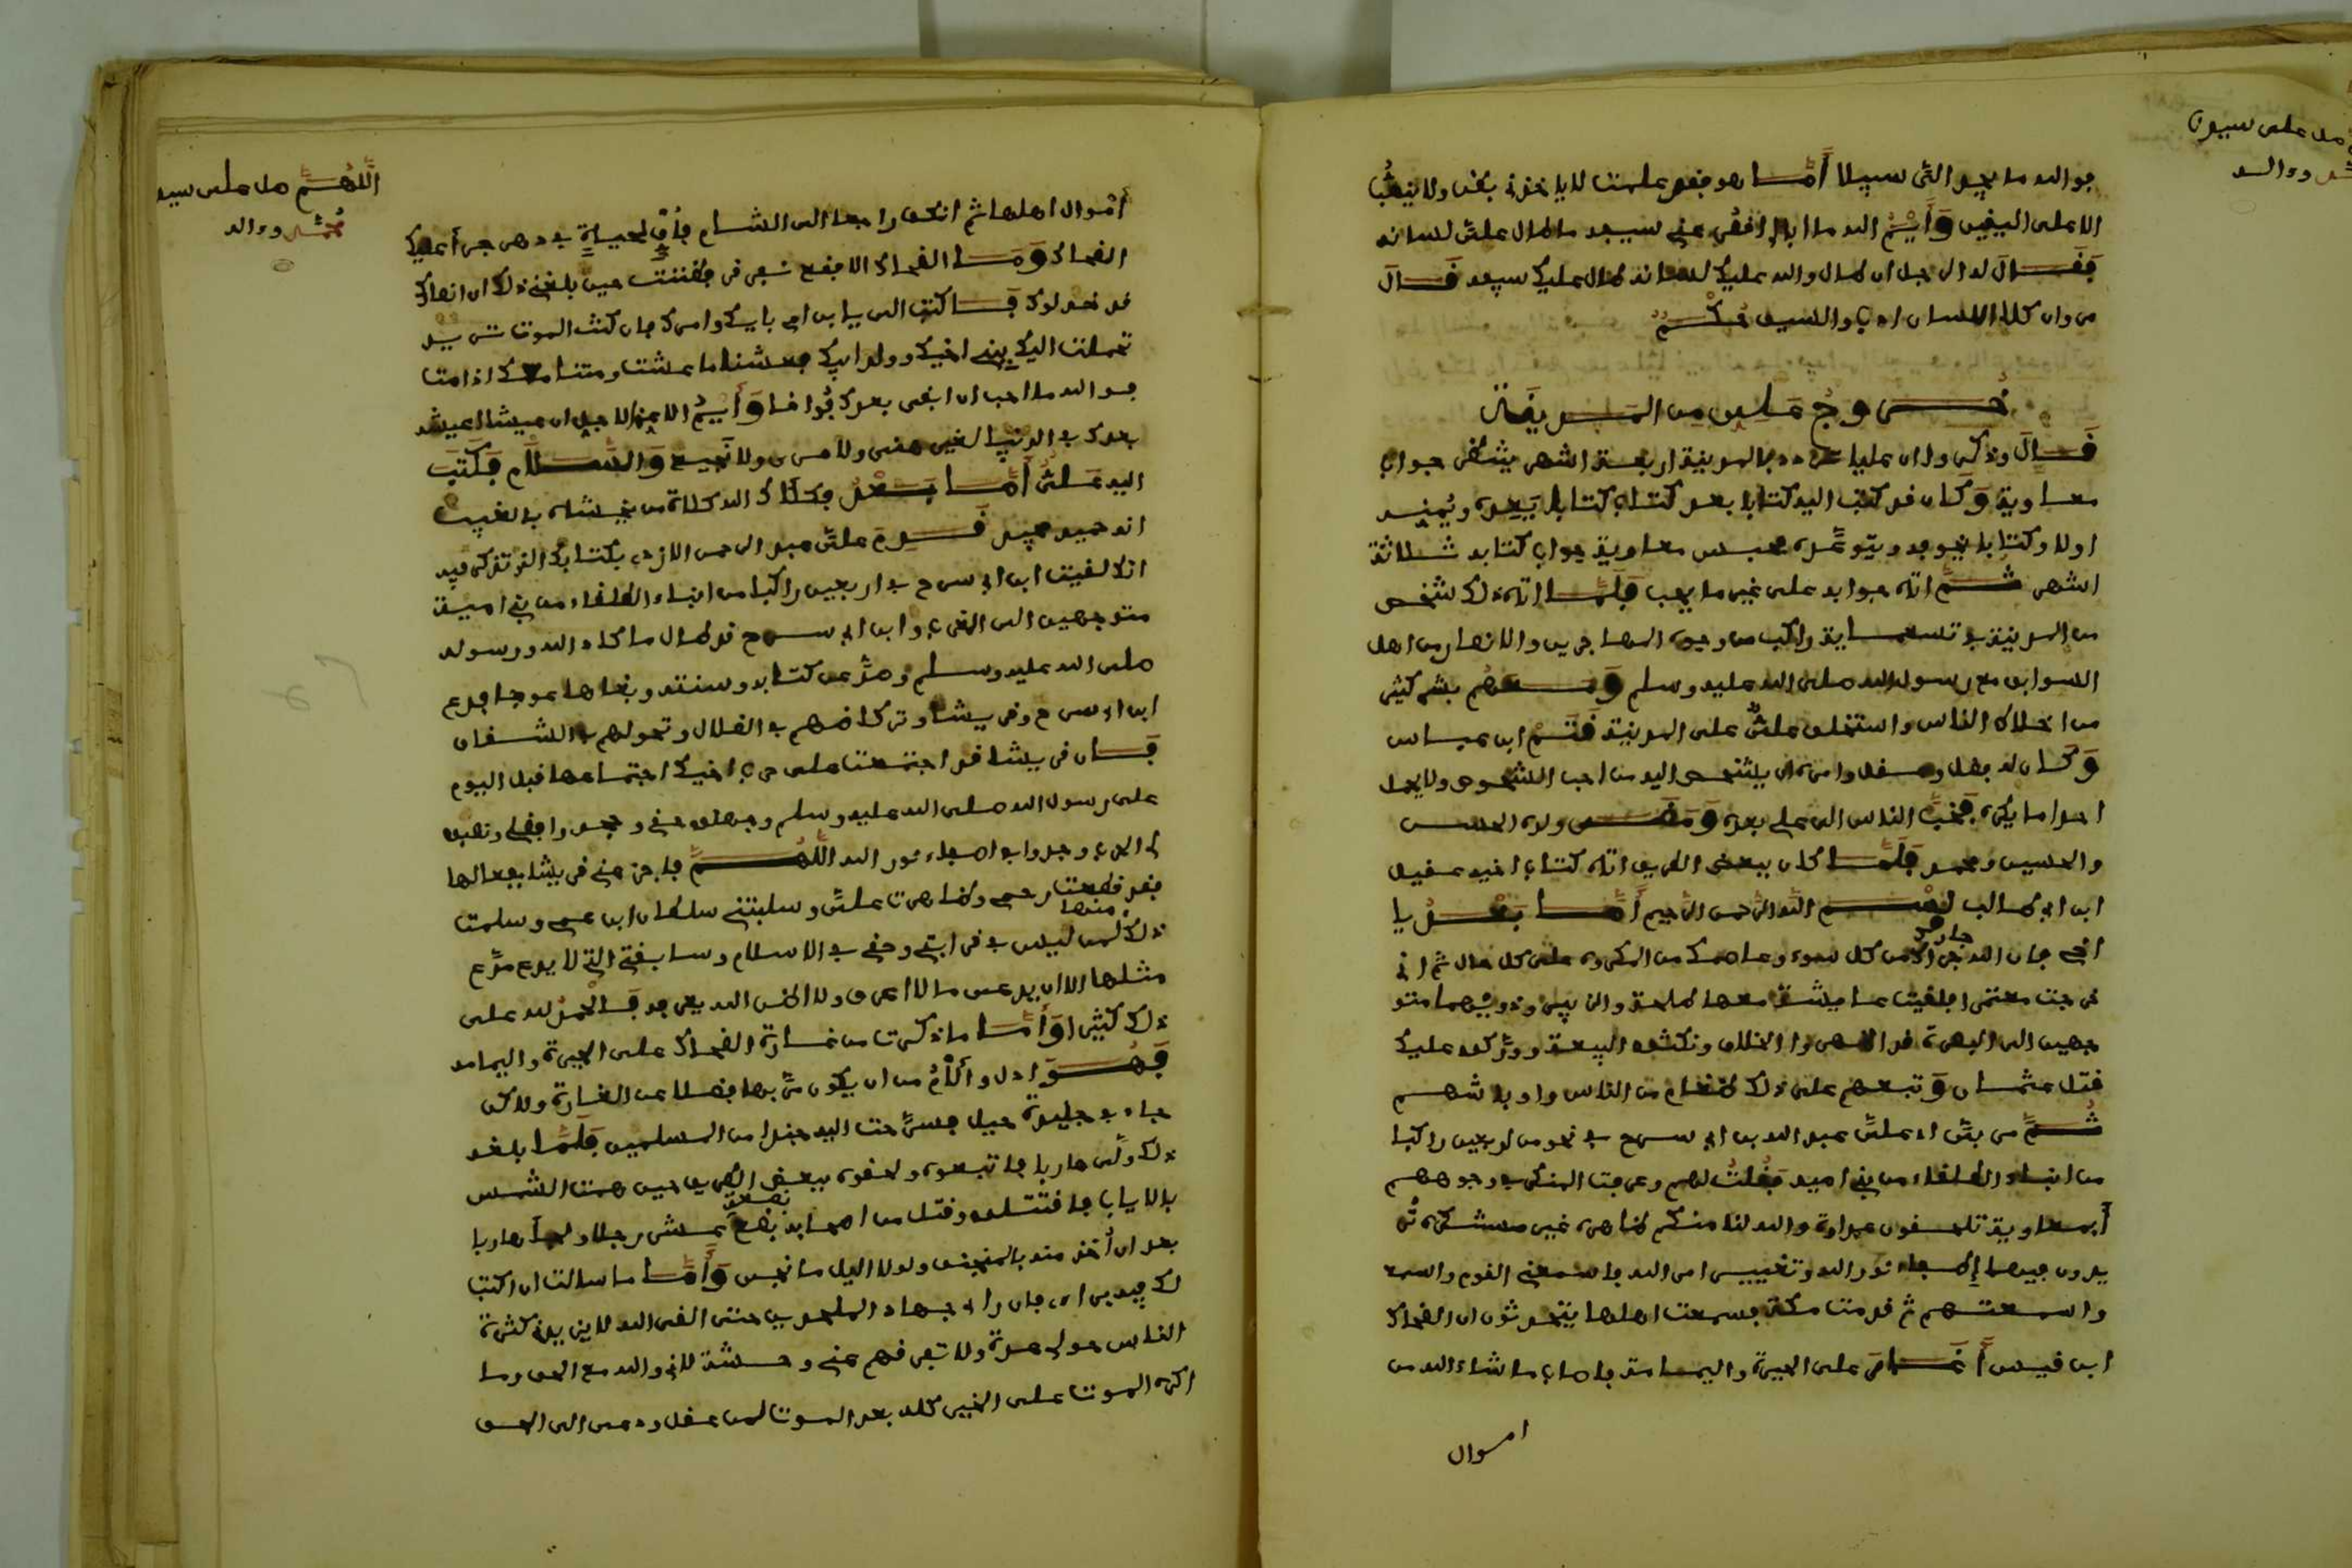 فوالله ما يجد الي سبيلا أما هو فقد علمت لا ياخذني بغدر ولا ينهب
الا على اليقين وأيم الله ما ابال اقصر عني سعيد ام اطال علي لسانه
فقال له الرجل ان طال والله عليك لسانه طال عليك سيفه قال
مروان كلا اللسان ادب والسيف حكم
خروج علي من المدينة
قال وذكروا ان عليا تردد بالمدينة اربعة اشهر ينتظر جواب
معاوية وكان قد كتب اليه كتابا بعد كتاب كتابا يعده ويمنيه
اولا وكتابا يخوفه ويتوعده فحبس معاوية جواب كتابه ثلاثة
اشهر ثم اتاه جوابه على غير ما يحب فلما اتاه ذلك شخص
من المدينة في تسعماية راكب من وجوه المهاجرين والانصار من اهل
السوابق مع رسول الله صلى الله عليه وسلم ومعهم بشر كثير
من اخلاط الناس واستخلف علي على المدينة قثم ابن عباس
وكان له فضل وعقل وامره ان يشخص اليه من احب الشخوص ولا يحمل
احدا ما يكره فخف الناس الى علي بعده ومضى ولده الحسن
والحسين ومحمد فلما كان ببعض الطريق اتاه كتاب اخيه عقيل
ابن ابي طالب بسم الله الرحمن الرحيم أما بعد يا
اخي فان الله جارك من كل سوء وعاصمك من المكروه على كل حال ثم اني
خرجت معتمرا فلقيت عايشة معها طلحة والزبير وذووهما متو
جهين الى البصرة قد اظهروا الخلاف ونكثوا البيعة وركبوا عليك
قتل عثمان وتبعهم على ذلك طغام من الناس واوباشهم
ثم مر بي ابن علي عبد الله بن ابي سرح في نحو من اربعين راكبا
من ابناء الطلقاء من بني امية فقلت لهم وعرفت المنكر في وجوههم
أبمعاوية تلحقون عداوة والله لنا منكم ظاهرة غير مستنكرة
يدون فيها إطفاء نور الله وتغيير امر الله فاسمعني القوم واسمعـ
واسمعتهم ثم قدمت مكة فسمعت اهلها يتحدثون ان الضحاك
ابن قيس أغار على الحيرة واليمامة فاصاب ما شاء الله من
اموال
اللهم صل على سيد
محمد وءاله
أموال اهلها ثم انكفا راجعا الى الشام فأف لحياة في دهر جرأ عليك
الضحاك وما الضحاك الا فقع بقرقر فظننت حين بلغني ذلك ان انصارك
قد خذلوك فاكتب الي يا ابن ام برأيك وامرك فان كنت الموت تريد
تحملت اليك ببني اخيك وولد ابيك فعشنا ما عشت ومتنا معك اذا مت
فوالله ما احب ان ابقى بعدك فواقا وأيم الله الاعز الاجل ان عيشا اعيشه
بعدك في الدنيا لغير هنئ ولا مرئ ولا نجيع والسلام فكتب
اليه علي أما بعد فكلاك الله كلاءة من يخشاه بالغيب
انه حميد مجيد قدم علي عبد الرحمن الازدي بكتابك الذي تذكر فيه
انك لقيت ابن ابي سرح في اربعين راكبا من ابناء الطلقاء من بني امية
متوجهين الى الغرب وابن ابي سرح قد طال ما كاد الله ورسوله
صلى الله عليه وسلم وصد عن كتابه وسنته وبغاها عوجا فدع
ابن ابي سرح وقريشا وتركاضهم في الضلال وتجوالهم في الشقاق
فان قريشا قد اجتمعت على حرب اخيك اجتماعها قبل اليوم
على رسول الله صلى الله عليه وسلم وجهلوا حقي وجحدوا فضلي ونصبوا
لي الحرب وجدوا في اطفاء نور الله اللهم فاجز عني قريشا بفعالها
فقد قطعت رحمي وظاهرت علي وسلبتني سلطان ابن عمي وسلمت
ذلك لمن ليس في قرابتي وحقي في الاسلام وسابقتي التي لا يدع مدع
مثلها الا ان يدعي ما لا اعرف ولا اظن الله يعرفه فالحمد لله على
ذلك كثيرا وأما ما ذكرت من غارة الضحاك على الحيرة واليمامة
فهو اذل والأم من ان يكون مر بها فضلا عن الغارة ولكن
جاء في جليدة خيل فسرحت اليه جندا من المسلمين فلما بلغه
ذلك ولى هاربا فاتبعوه ولحقوه ببعض الطريق حين همت الشمس
بالاياب فاقتتلوا وقتل من اصحابه بضعة عشر رجلا ولجأ هاربا
بعد ان أخذ منه بالمخنق ولولا اليل ما نجى وأما ما سالت ان اكتب
لك فيه برأيي فان رأي جهاد الملحدين حتى القى الله لا يزيدني كثرة
الناس حولي عزة ولا تفرقهم عني وحشة لاني والله مع الحق وما
اكره الموت على الخير كله بعد الموت لمن عقل ودعى الى الحق